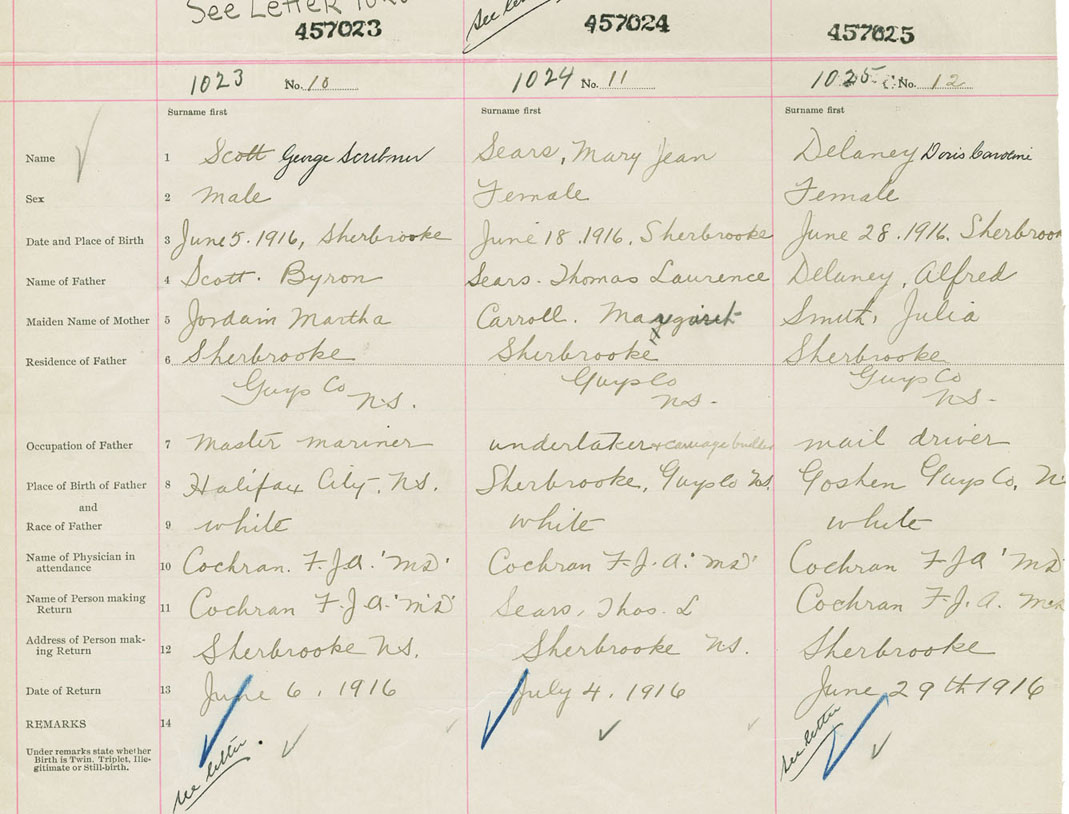 See Letter
see
457023 457024 457025
1023 No. 10 1024 No. 11 1025 No. 12
Surname first Surname first Surname first
Name 1 Scott George Scribner Sears, Mary Jean Delaney Doris Caroline
Sex 2 Male Female Female
Date and Place of Birth 3 June 5. 1916, Sherbrooke June 18. 1916. Sherbrooke June 28. 1916. Sherbroo
Name of Father 4 Scott. Byron Sears. Thomas Laurence Delaney, Alfred
Maiden Name of Mother 5 Jordain Martha Carroll. Margaret Smith, Julia
Residence of Father 6 Sherbrooke Sherbrooke Sherbrooke
Guys Co Guys Co Guys Co
N.S. N.S. N.S.
Occupation of Father 7 Master mariner undertaker & carriage builder mail driver
Place of Birth of Father 8 Halifax City, N.S. Sherbrooke, Guys Co N.S. Goshen Guys Co, N
and
Race of Father 9 white white white
Name of Physician in
attendance 10 Cochran. F. J. A. 'MD' Cochran F. J. A. 'MD' Cochran F J A 'MD'
Name of Person making
Return 11 Cochran F. J. A. 'MD' Sears, Thos. L Cochran F. J. A. MD
Address of Person mak-
ing Return 12 Sherbrooke N.S. Sherbrooke N.S. Sherbrooke
Date of Return 13 June 6, 1916 July 4, 1916 June 29th 1916
REMARKS 14
Under remarks state whether
Birth is Twin, Triplet, Ille-
gitimate or Still-birth.
see letter see letter